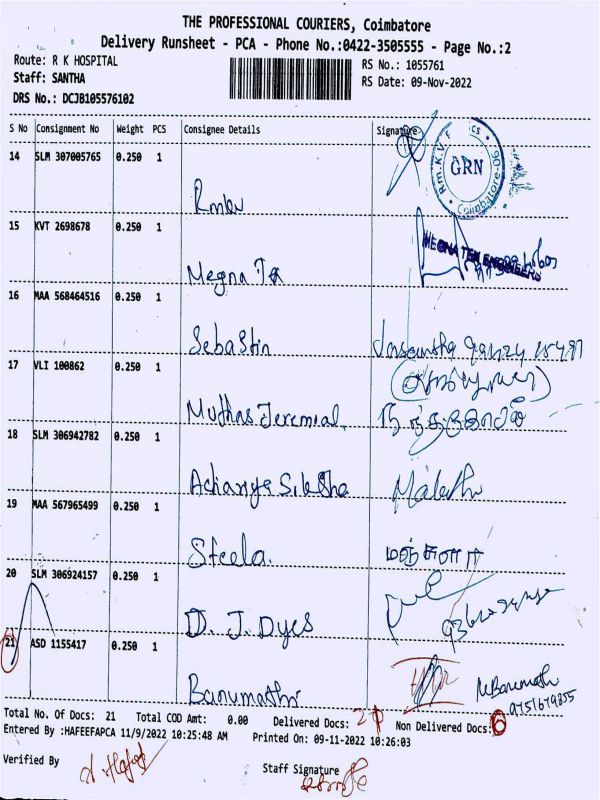 THE PROFESSIONAL COURIERS, Coimbatore
Delivery Runsheet - PCA - Phone No.:0422-3505555 - Page No.:2
Route: R K HOSPITAL
Staff: SANTHA
DRS No.: DCJB105576102
RS No.: 1055761
RS Date: 09-Nov-2022
S No Consignment No Weight PCS Consignee Details Signature
14 SLM 307005765 0.250 1
GRN
Coimbatore-90
Rmkv
15 KVT 2698678 0.250 1
MEGNA TEX ENGINEERS
Megna Tex
16 MAA 568464516 0.250 1
Sebastin
17 VLI 100862 0.250 1
Muthas Jeremial.
18 SLM 306942782 0.250 1
Acharya Siksha
Malathi
19 MAA 567965499 0.250 1
Steela.
மஞ்சுளா
20 SLM 306924157 0.250 1
D. J. Dyes
21 ASD 1155417 0.250 1
Banumathi
M Banumathi
9751679355
Total No. Of Docs: 21 Total COD Amt: 0.00 Delivered Docs: 21 Non Delivered Docs:
Entered By :HAFEEFAPCA 11/9/2022 10:25:48 AM Printed On: 09-11-2022 10:26:03
Verified By
Staff Signature